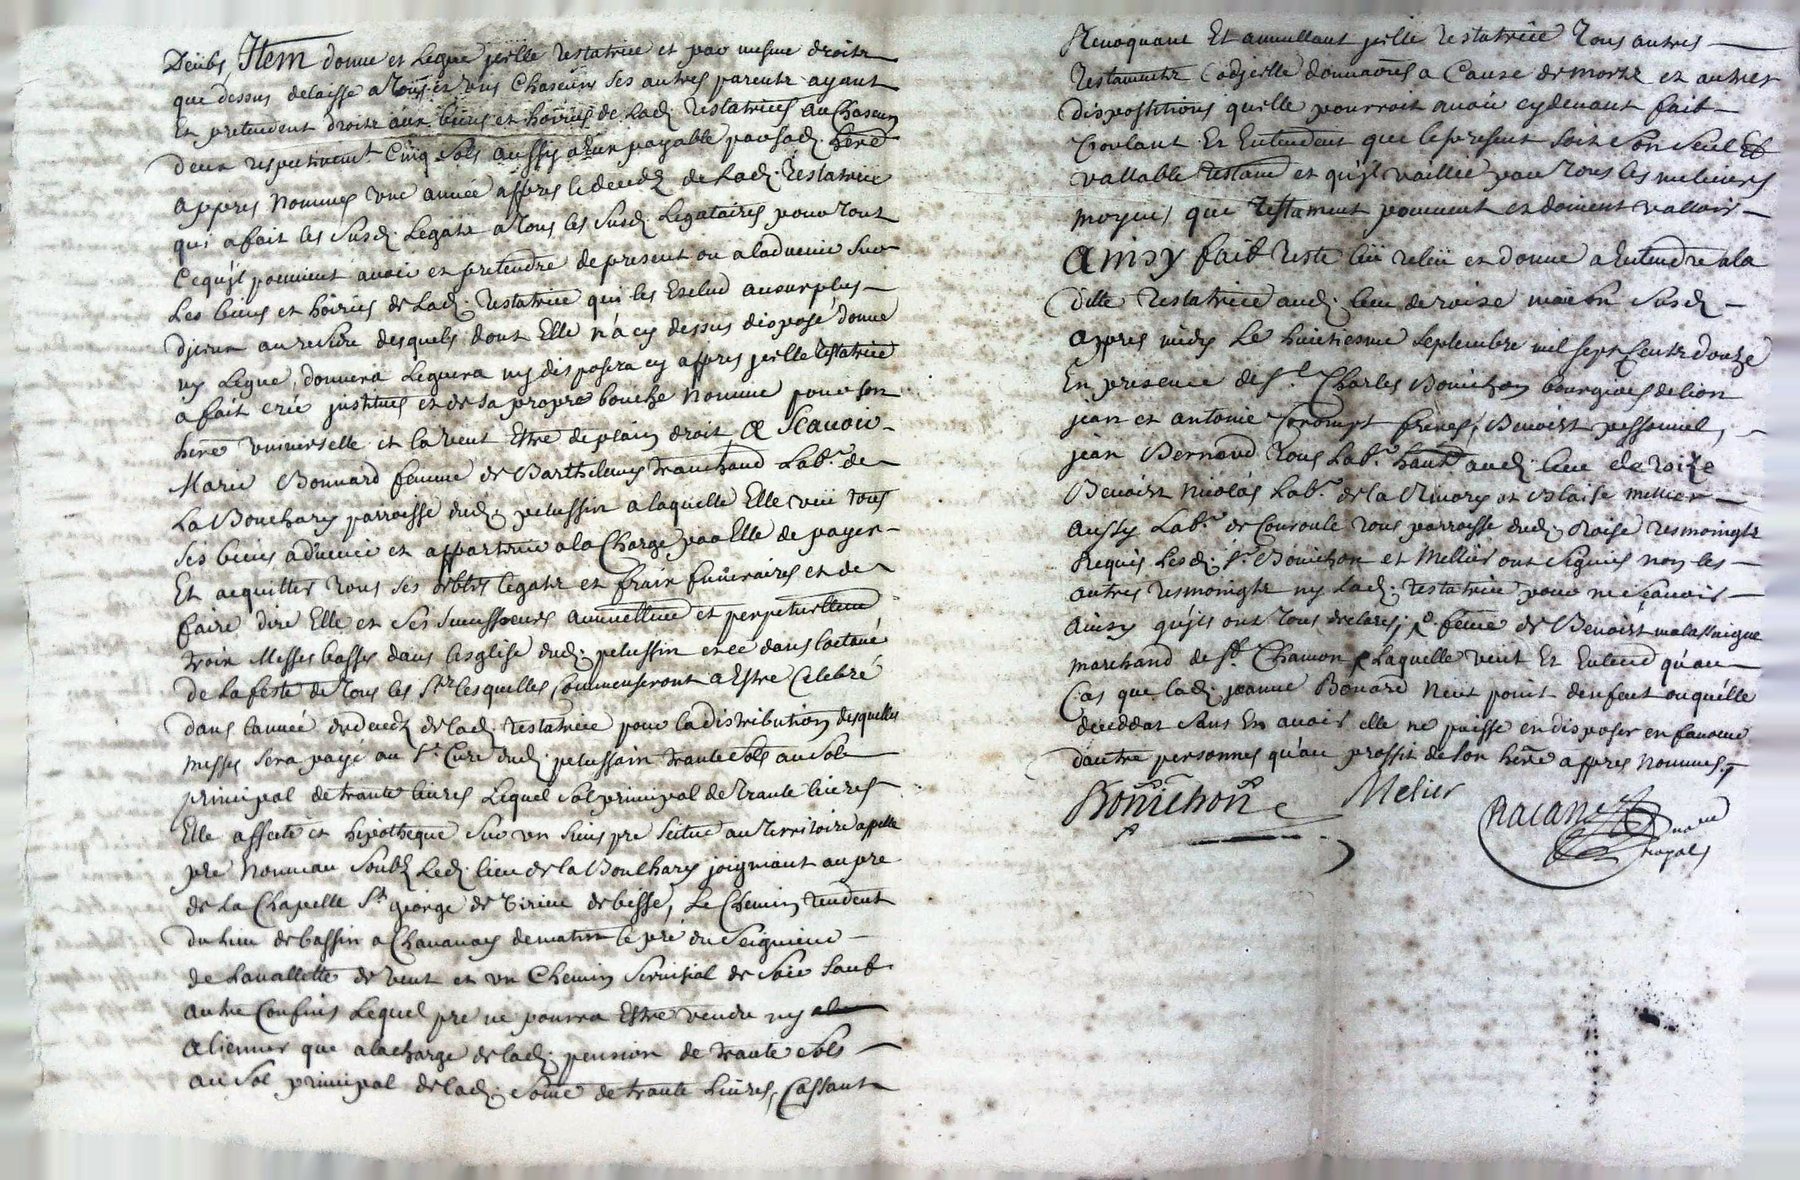 Deubs Item donne et Legue jcelle testatrice et par mesme droitz
que dessus delaisse a tous et uns Chascuns ses autres parents ayant
Et pretendent droitz aux biens et hoiries de Lad. Testatrices au Chascun
deux respectivem.t Cinq sols aussy a eux payable par sad. here
appres nommes une année appres le decedz de Lad. Testatrice
qui a fait les susd. Legatz a tous les susd. Legataires pour tout
Cequ'ils pouvient avoir et pretendre de present ou a ladvenir sur
Les biens et hoiries de Lad. testatrice qui les Exclud au surplus
au residu desquels dont Elle n'a cy dessus disposé donné
ny Legué, donnera Leguera ny disposera cy appres jcelle testatrice
a fait crée justitué et de sa propre bouche Nommé pour son
here universelle et la veut Estre de plain droit, a Scavoir
Marie Bonnard femme de Barthelemy tranchand Lab.r de
La Bouchary parroisse dud. pelussin a laquelle Elle veu tous
ses biens advenir et appartenir a la Charge par Elle de payer
Et acquitter tous ses debtes legatz et fraix funeraires et de
faire dire Elle et ses successeurs annuellem et perpetuellem
troix Messes basses dans lesglise dud. pelussin et ce dans loctave
de la feste de tous les sts lesquelles Commenseront a Estre Celebré
dans l'année du decedz de lad. testatrice pour la distribution desquelles
messes sera payé au sr Curé dud. pelussain trante sols au sol
principal de trante livres Lequel sol principal de trante livres
Elle affecte et hipotheque sur un sien pre scitue au territoire appellé
pre nouveau soubz Led. lieu de la Bouchary joignant au pre
de La Chapelle St george de Virieu de bisse, Le Chemin tendent
du lieu de bassin a Chavanay de matin le pré du Seigneur
de Lavallette de vent et un Chemin servisial de soir sauf
autre Confins Lequel pre ne pourra Estre vendu ny
aliennes que a la charge de lad. pension de trante sols
au sol principal de lad. somme de trante livres, Cassant
Revoquant Et annullant jcelle testatrice tous autres
testamentz Codjcille donnaõns a Cause de mortz et autres
dispostitions qu'elle pourroit avoir cy devant fait
Voulant Et Entendent que le present soit son seul Et
vallable testam et qu'jl vaillie par tous les melieurs
moyens que testament peuvent et doivent valloir
Ainsy fait testé leü releü et donné a Entendre a la
ditte testatrice aud. lieu de roize maison susd.
appres midy Le huictiesme septembre mil sept Centz douze
En presence de sr Charles Bonichon bourgeois de lion
jean et antoine Corompt freres, Benoist pessonnel,
jean Bernard tous Lab.r haut aud. lieu de roize
Benoist Nicolas Lab.r de la Rivory et blaise mellier
aussy Lab.r de Couroule tous parroisse dud. Roise tesmoingtz
Requis Lesd. sr Bonichon et Mellier ont signés non les
autres tesmoingtz ny Lad. testatrice pour ne scavoir
Ainsy qu'jls ont tous declarés; femme de Benoist malassaigne
marchand de st Chamon Laquelle veut Et Entend qu'au
Cas que lad. jeanne Bonard neut point denfent ou qu'elle
deceddat sans En avoir elle ne puisse en disposer en faveur
dautre personnes qu'au proffit de son here appres nommés
Bonichon Melier Racane
nore
royal